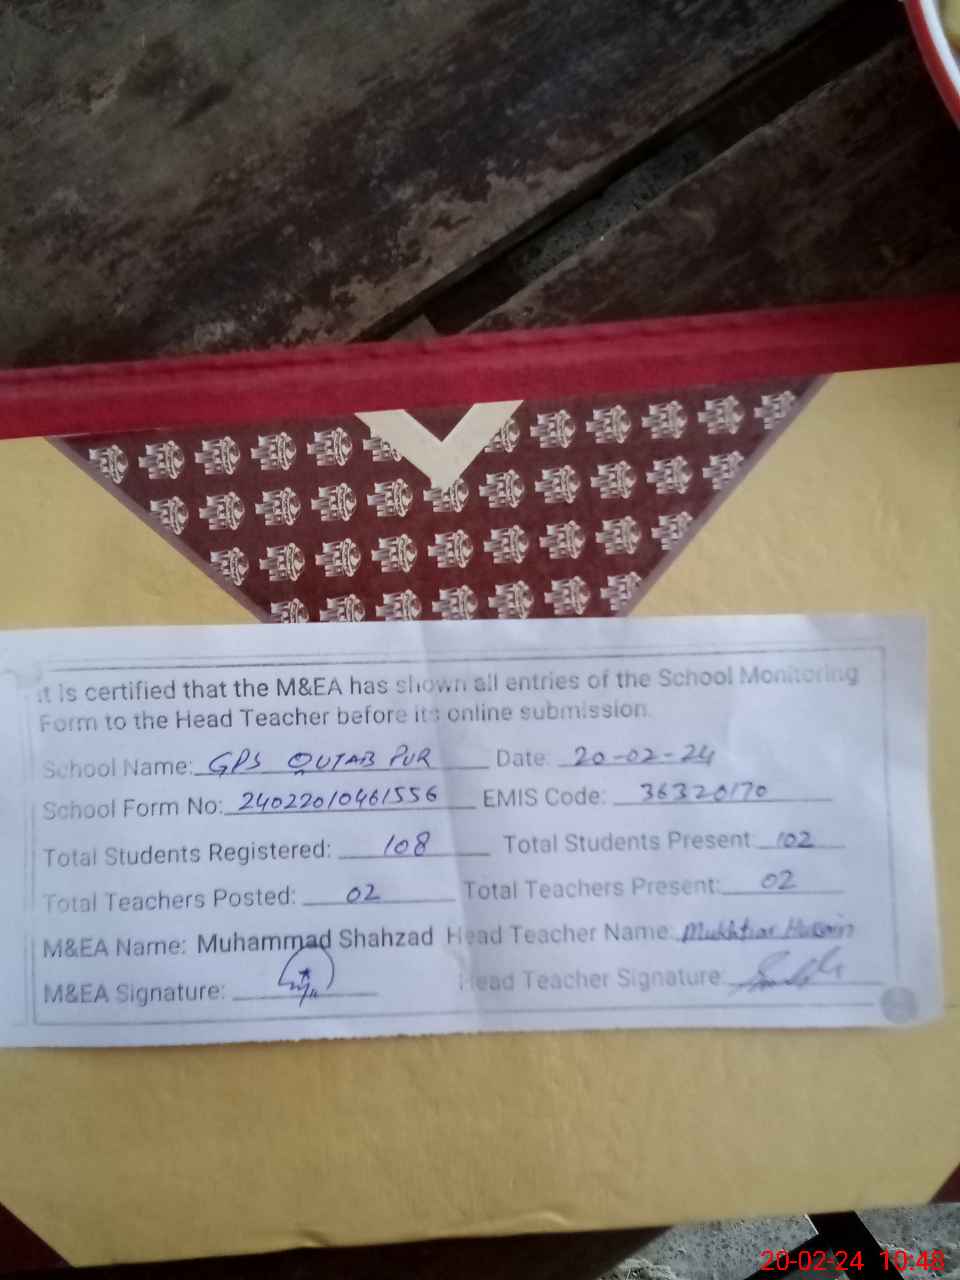 It is certified that the M&EA has shown all entries of the School Monitoring
Form to the Head Teacher before its online submission.
School Name: GPS QUTAB PUR Date: 20-02-24
School Form No: 24022010461556 EMIS Code: 36320170
Total Students Registered: 108 Total Students Present: 102
Total Teachers Posted: 02 Total Teachers Present: 02
M&EA Name: Muhammad Shahzad Head Teacher Name: Mukhtiar Hussain
M&EA Signature: Head Teacher Signature:
20-02-24 10:48